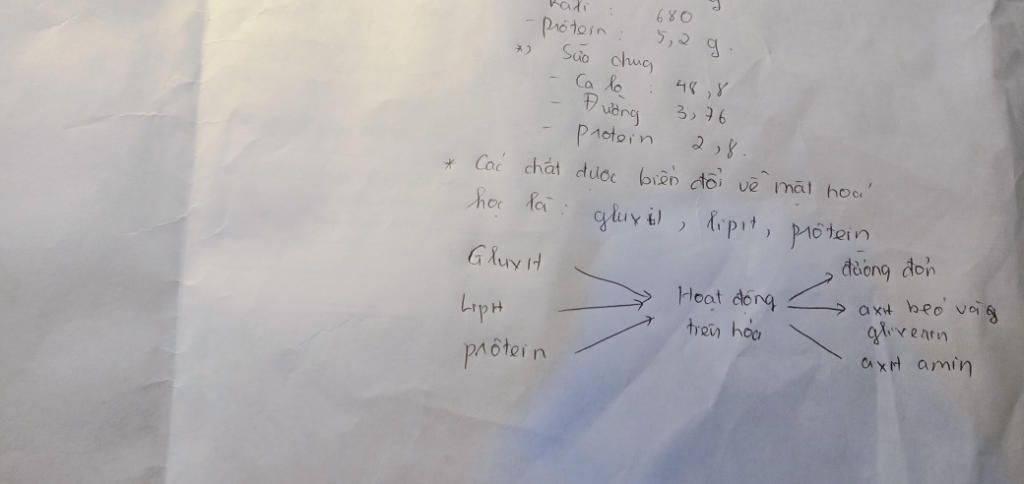 Kali : 680 g
- prôtein : 5,2 g.
*) Sữa chua
- Ca lo : 48,8
- Đường 3,76
- protein 2,8.
* Các chất được biến đổi về mặt hoá
học là : gluxit, lipit, prôtein
Gluxit
Lipit
prôtein
Hoạt động
trên hóa
đường đơn
axit beó và g
glixerin
axit amin